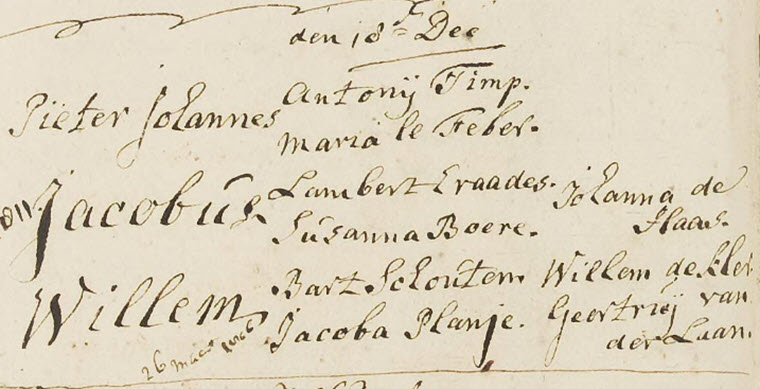 den 18e Dec
Pieter Johannes Antonij Timp.
Maria le Feber.
1811. Jacobus Lambert Eraades. Johanna de
Susanna Boere. Haas.
Willem Bart Schouten. Willem de kler
Jacoba Planje. Geertruij van
26 maart der Laan.